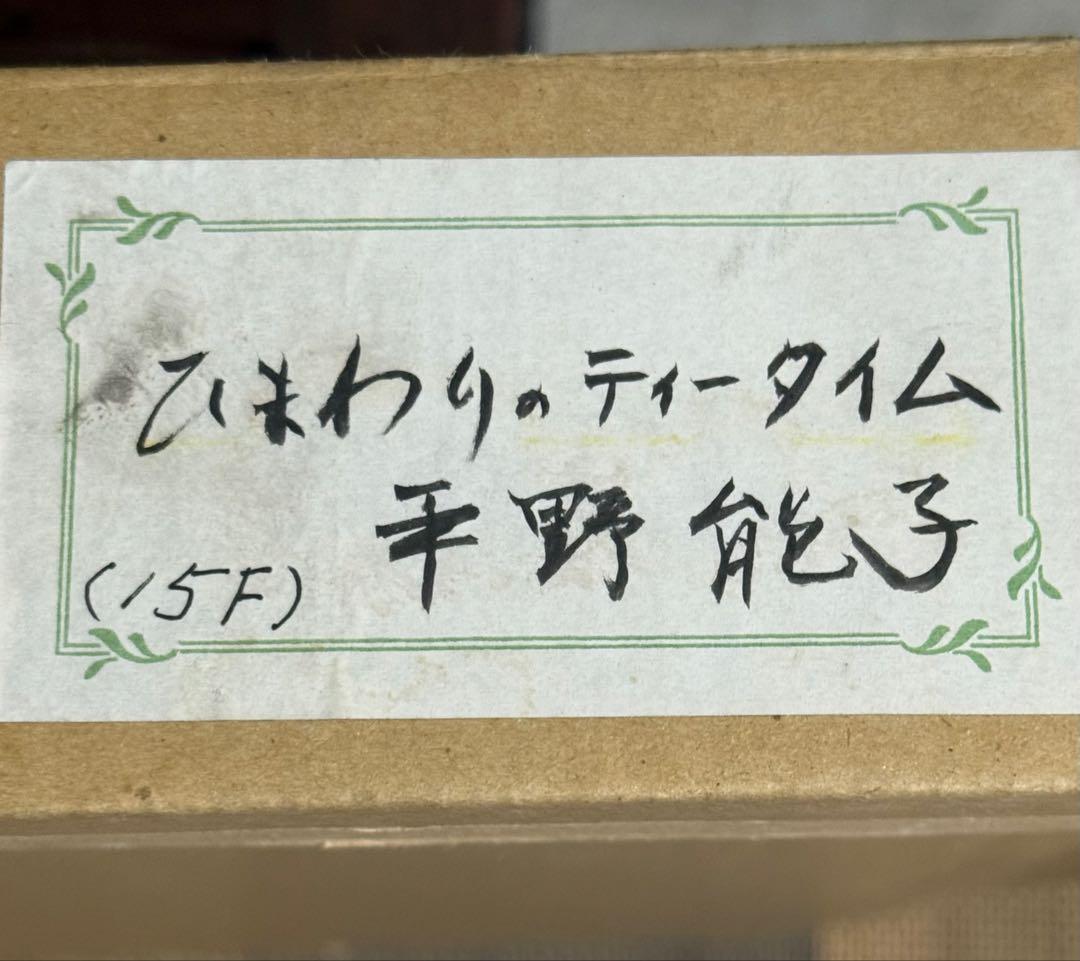 ひまわりのティータイム
平野能子
(15F)